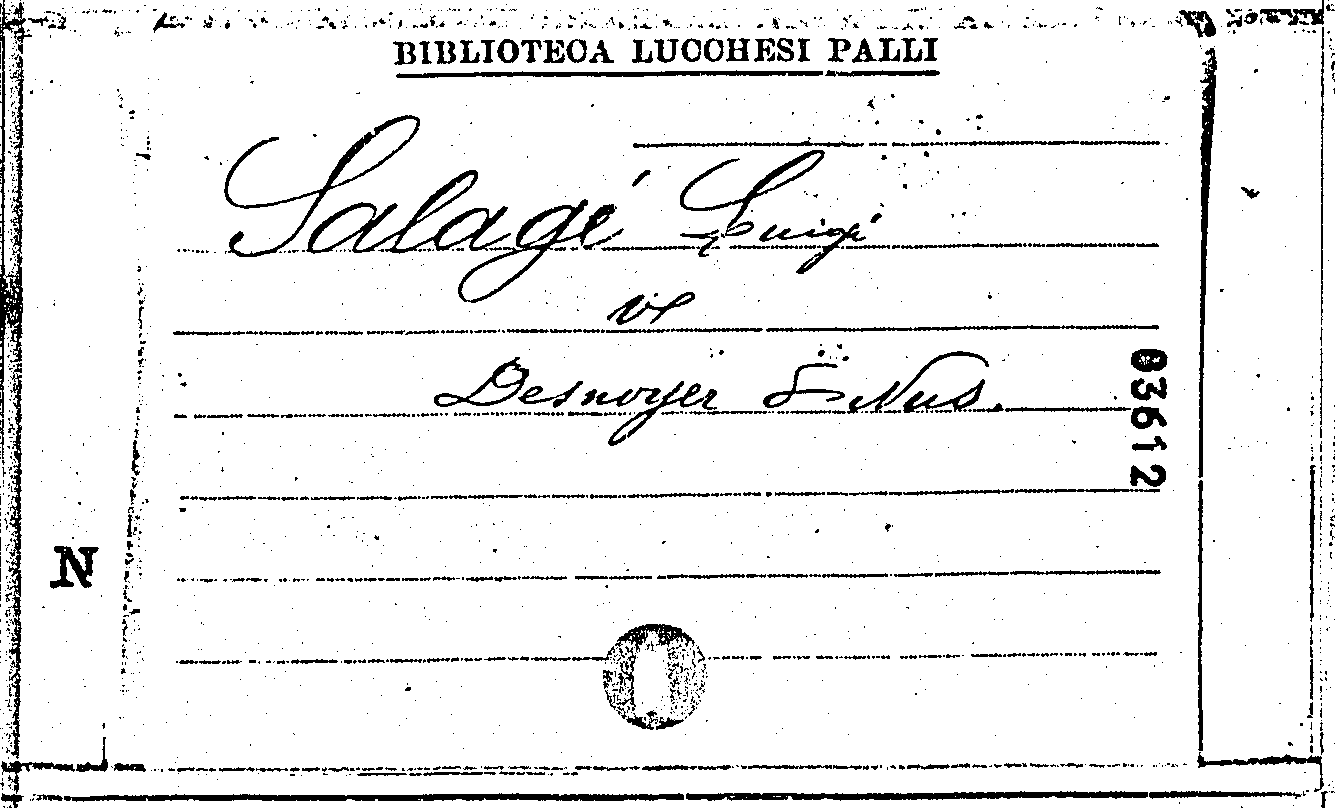 BIBLIOTECA LUCCHESI PALLI
Salagé Luigi
V
Desnoyer & Nus.
03612
N